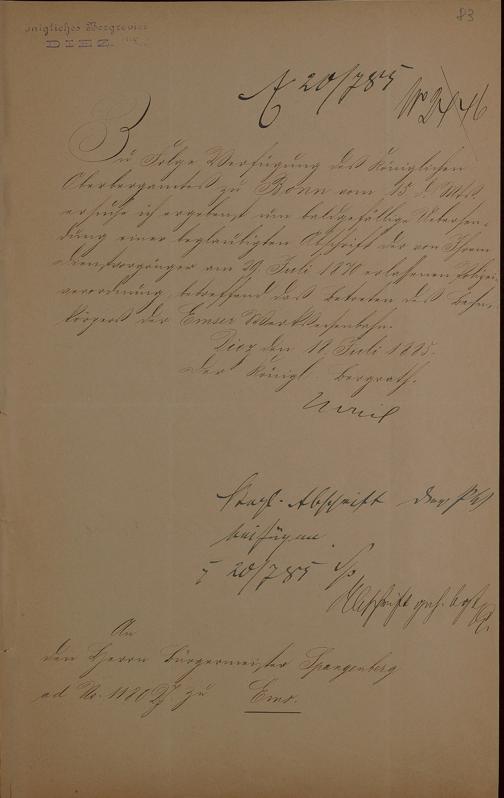 83
Königliches Bergrevier
DIEZ.
20/7 85
Zu Folge Verfügung des Königlichen
Oberbergamtes zu Bonn vom 15. d. Mts.
ersuche ich ergebenst um baldgefällige Uebersen-
dung einer beglaubigten Abschrift der von Ihrem
Dienstvorgänger am 29. Juli 1870 erlassenen Polizei-
verordnung, betreffend das Betreten des Bahn-
körpers der Emser Werkseisenbahn.
Diez den 18. Juli 1885.
Der Königl. Bergrath.
Abschrift der
beifügen
20/7 85
Abschrift
An
den Herrn Bürgermeister Spangenberg
ad No. 1180 zu Ems.